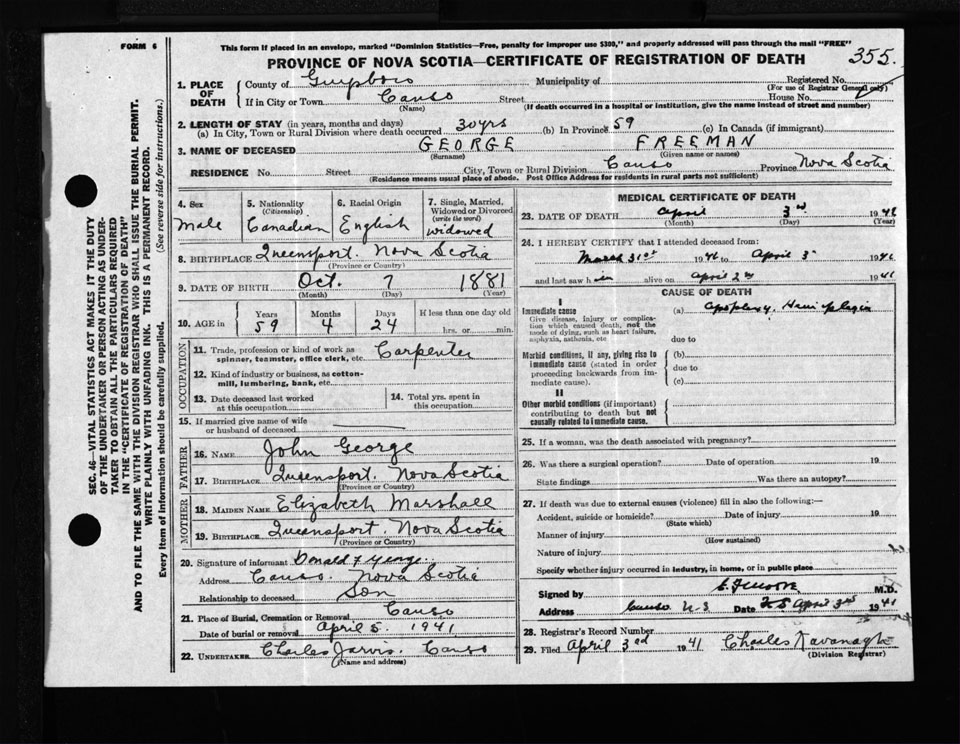 FORM 6
This form if placed in an envelope, marked "Dominion Statistics—Free, penalty for improper use $300," and properly addressed will pass through the mail "FREE"
PROVINCE OF NOVA SCOTIA—CERTIFICATE OF REGISTRATION OF DEATH 355.
1. PLACE OF DEATH
County of Guysboro Municipality of Registered No.
(For use of Registrar General only)
If in City or Town Canso Street House No.
(Name) (If death occurred in a hospital or institution, give the name instead of street and number)
2. LENGTH OF STAY (in years, months and days)
(a) In City, Town or Rural Division where death occurred 30 yrs (b) In Province 59 (c) In Canada (if immigrant)
3. NAME OF DECEASED GEORGE FREEMAN
(Surname) (Given name or names)
RESIDENCE No. Street City, Town or Rural Division Canso Province Nova Scotia
(Residence means usual place of abode. Post Office Address for residents in rural parts not sufficient)
4. Sex Male
5. Nationality (Citizenship) Canadian
6. Racial Origin English
7. Single, Married, Widowed or Divorced (write the word) widowed
8. BIRTHPLACE Queensport. Nova Scotia
(Province or Country)
9. DATE OF BIRTH Oct. 7 1881
(Month) (Day) (Year)
10. AGE in Years 59 Months 4 Days 24 If less than one day old hrs. or min.
OCCUPATION
11. Trade, profession or kind of work as spinner, teamster, office clerk, etc. Carpenter
12. Kind of industry or business, as cotton-mill, lumbering, bank, etc.
13. Date deceased last worked at this occupation
14. Total yrs. spent in this occupation
15. If married give name of wife or husband of deceased
FATHER
16. NAME John George
17. BIRTHPLACE Queensport. Nova Scotia
(Province or Country)
MOTHER
18. MAIDEN NAME Elizabeth Marshall
19. BIRTHPLACE Queensport. Nova Scotia
(Province or Country)
20. Signature of informant Donald F George.
Address Canso. Nova Scotia
Relationship to deceased Son
21. Place of Burial, Cremation or Removal Canso
Date of burial or removal April 5. 1941
22. UNDERTAKER Charles Jarvis. Canso
(Name and address)
MEDICAL CERTIFICATE OF DEATH
23. DATE OF DEATH April 3rd 1941
(Month) (Day) (Year)
24. I HEREBY CERTIFY that I attended deceased from:
March 31st 1941 to April 3 1941
and last saw him alive on April 2nd 1941
CAUSE OF DEATH
I
Immediate cause
Give disease, injury or complication which caused death, not the mode of dying, such as heart failure, asphyxia, asthenia, etc
(a) apoplexy. Hemiplegia
due to
Morbid conditions, if any, giving rise to immediate cause (stated in order proceeding backwards from immediate cause).
(b)
due to
(c)
II
Other morbid conditions (if important) contributing to death but not causally related to immediate cause.
25. If a woman, was the death associated with pregnancy?
26. Was there a surgical operation? Date of operation 19
State findings Was there an autopsy?
27. If death was due to external causes (violence) fill in also the following:—
Accident, suicide or homicide? Date of injury 19
(State which)
Manner of injury
(How sustained)
Nature of injury
Specify whether injury occurred in industry, in home, or in public place
Signed by M.D.
Address Canso N-S Date April 3rd 1941
28. Registrar's Record Number
29. Filed April 3rd 1941 Charles Kavanagh
(Division Registrar)
SEC. 46—VITAL STATISTICS ACT MAKES IT THE DUTY
OF THE UNDERTAKER OR PERSON ACTING AS UNDER-
TAKER TO OBTAIN ALL THE PARTICULARS REQUIRED
IN THE "CERTIFICATE OF REGISTRATION OF DEATH"
AND TO FILE THE SAME WITH THE DIVISION REGISTRAR WHO SHALL ISSUE THE BURIAL PERMIT.
WRITE PLAINLY WITH UNFADING INK. THIS IS A PERMANENT RECORD.
Every item of information should be carefully supplied. (See reverse side for instructions.)